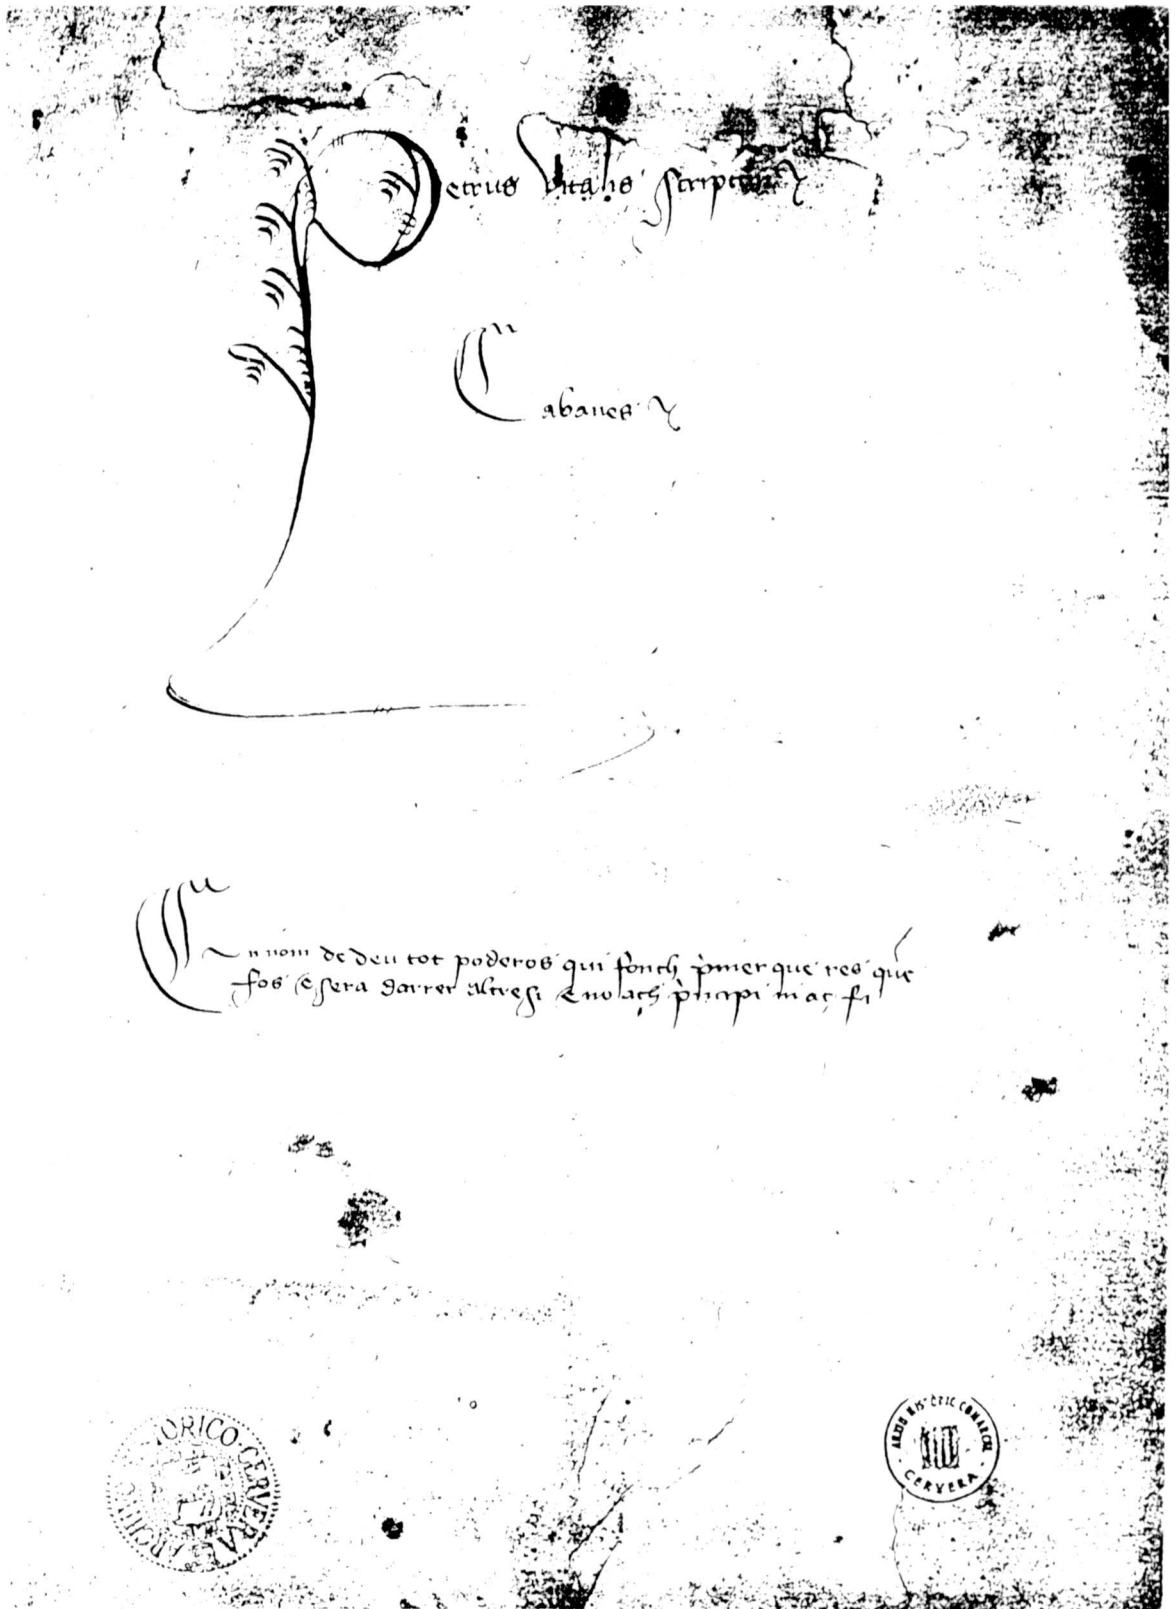 Petrus vitalis scriptor
Cabanes
En nom de deu tot poderos qui fonch pmer que res que
fos e sera darrer altresi e no ach pncipi ni aç fi
ORICO·CERVERA
ARXIU HISTÒRIC COMARCAL
· CERVERA ·